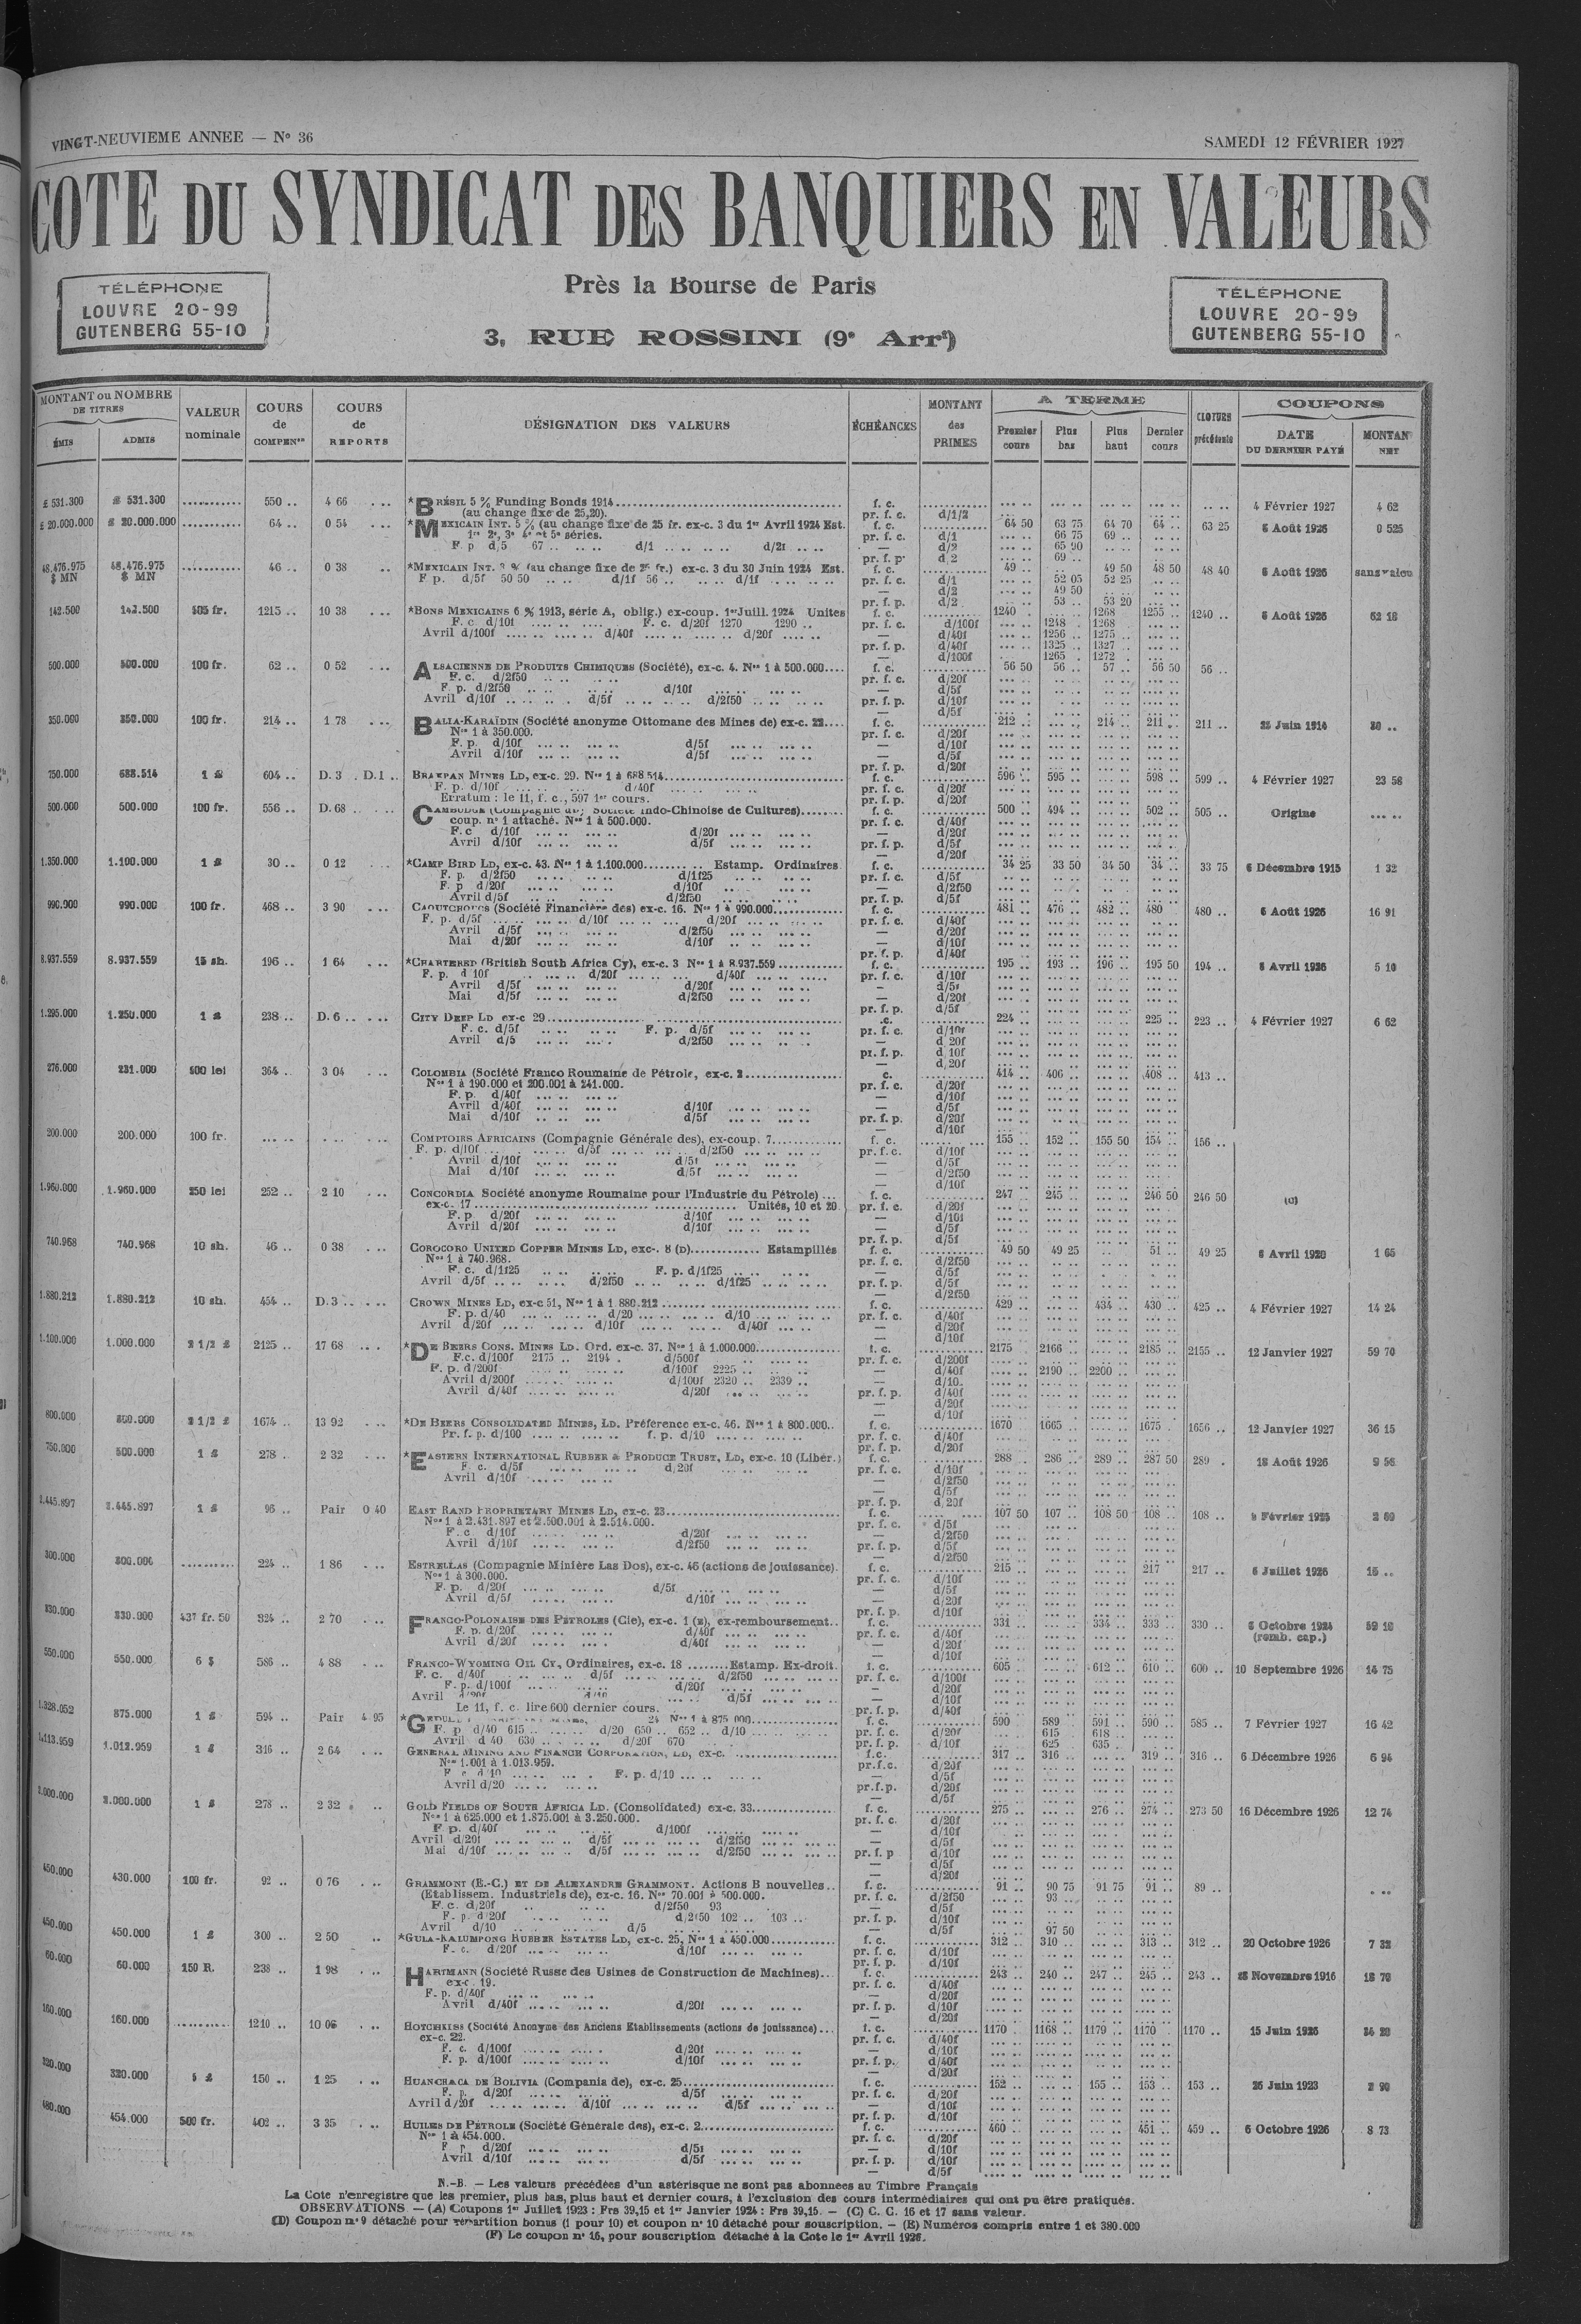 VINGT-NEUVIEME ANNEE — N° 36
SAMEDI 12 FÉVRIER 1927
COTE DU SYNDICAT DES BANQUIERS EN VALEURS
TÉLÉPHONE
LOUVRE 20-99
GUTENBERG 55-10
Près la Bourse de Paris
3, RUE ROSSINI (9e Arrt)
TÉLÉPHONE
LOUVRE 20-99
GUTENBERG 55-10
MONTANT ou NOMBRE DE TITRES
ÉMIS ADMIS
VALEUR nominale
COURS de COMPENon
COURS de REPORTS
DÉSIGNATION DES VALEURS
ÉCHÉANCES
MONTANT des PRIMES
A TERME
Premier cours Plus bas Plus haut Dernier cours
CLOTURE précédente
COUPONS
DATE DU DERNIER PAYÉ
MONTAN NET
£ 531.300 £ 531.300 550 .. 4 66 *BRÉSIL 5 % Funding Bonds 1914 f. c. 4 Février 1927 4 62
(au change fixe de 25,20). pr. f. c. d/1/2
£ 20.000.000 £ 20.000.000 64 .. 0 54 *MEXICAIN INT. 5 % (au change fixe de 25 fr. ex-c. 3 du 1er Avril 1924 Est. f. c. 64 50 63 75 64 70 64 .. 63 25 6 Août 1926 0 525
1re 2e, 3e 4e et 5e séries. pr. f. c. d/1 66 75 69 ..
F. p d,5 67 .. d/1 d/2f — d/2 65 90
pr. f. p. d,2 69 ..
48.476.975 $ MN 48.476.975 $ MN 46 .. 0 38 *MEXICAIN INT. 3 % (au change fixe de 25 fr.) ex-c. 3 du 30 Juin 1924 Est. f. c. 49 .. 49 50 48 50 48 40 6 Août 1926 sans valeu
F p. d/5f 50 50 d/1f 56 .. d/1f pr. f. c. d/1 52 05 52 25
— d/2 49 50
pr. f. p. d/2 53 .. 53 20
142.500 142.500 505 fr. 1215 .. 10 38 *BONS MEXICAINS 6 % 1913, série A, oblig.) ex-coup. 1er Juill. 1924 Unites f. c. 1240 1268 1255 .. 1240 .. 6 Août 1926 52 18
F. c d/10f F. c. d/20f 1270 1290 .. pr. f. c. d/100f 1248 1268
Avril d/100f d/40f d/20f — d/40f 1256 1275
pr. f. p. d/40f 1325 1327
— d/100f 1265 1272
500.000 500.000 100 fr. 62 .. 0 52 ALSACIENNE DE PRODUITS CHIMIQUES (Société), ex-c. 4. Nos 1 à 500.000 f. c. 56 50 56 .. 57 .. 56 50 56 ..
F. c. d/2f50 pr. f. c. d/20f
F. p. d/2f50 d/10f — d/5f
Avril d/10f d/5f d/2f50 pr. f. p. d/10f
— d/5f
350.000 350.000 100 fr. 214 .. 1 78 BALIA-KARAÏDIN (Société anonyme Ottomane des Mines de) ex-c. 22 f. c. 212 .. 214 .. 211 .. 211 .. 25 Juin 1914 20 ..
Nos 1 à 350.000. pr. f. c. d/20f
F. p. d/10f d/5f — d/10f
Avril d/10f d/5f — d/5f
pr. f. p. d/20f
750.000 688.514 1 £ 604 .. D. 3 . D.1 .. BRAKPAN MINES LD, ex-c. 29. Nos 1 à 688 514 f. c. 596 .. 595 .. 598 .. 599 .. 4 Février 1927 23 58
F. p. d/10f d/40f pr. f. c. d/20f
Erratum : le 11, f. c., 597 1er cours. pr. f. p. d/20f
500.000 500.000 100 fr. 556 .. D. 68 .. CAMBODGE (Compagnie du) Société Indo-Chinoise de Cultures) f. c. 500 494 .. 502 .. 505 .. Origine
coup. n° 1 attaché. Nos 1 à 500.000. pr. f. c. d/40f
F.c d/10f d/20f — d/20f
Avril d/10f d/5f pr. f. p. d/5f
— d/20f
1.350.000 1.100.000 1 £ 30 .. 0 12 *CAMP BIRD LD, ex-c. 43. Nos 1 à 1.100.000 Estamp. Ordinaires f. c. 34 25 33 50 34 50 34 .. 33 75 6 Décembre 1915 1 32
F. p. d/2f50 d/1f25 pr. f. c. d/5f
F. p d/20f d/10f — d/2f50
Avril d/5f d/2f50 pr. f. p. d/5f
990.900 990.000 100 fr. 468 .. 3 90 CAOUTCHOUCS (Société Financière des) ex-c. 16. Nos 1 à 990.000 f. c. 481 .. 476 .. 482 .. 480 480 .. 6 Août 1926 16 91
F. p. d/5f d/10f d/20f pr. f. c. d/40f
Avril d/5f d/2f50 — d/20f
Mai d/20f d/10f — d/10f
pr. f. p. d/40f
8.937.559 8.937.559 15 sh. 196 .. 1 64 *CHARTERED (British South Africa Cy), ex-c. 3 Nos 1 à 8.937.559 f. c. 195 .. 193 .. 196 .. 195 50 194 .. 8 Avril 1926 5 10
F. p. d 10f d/20f d/40f pr. f. c. d/10f
Avril d/5f d/20f — d/5f
Mai d/5f d/2f50 — d/20f
pr. f. p. d/5f
1.295.000 1.250.000 1 £ 238 .. D. 6 .. CITY DEEP LD ex-c 29 .c. 224 .. 225 .. 223 .. 4 Février 1927 6 62
F. c. d/5f F. p. d/5f pr. f. c. d/10f
Avril d/5 d/2f50 — d 20f
pr. f. p. d 10f
— d,20f
276.000 231.000 500 lei 364 .. 3 04 COLOMBIA (Société Franco Roumaine de Pétrole, ex-c. 2 c. 414 .. 406 .. 408 .. 413 ..
Nos 1 à 190.000 et 200.001 à 241.000. pr. f. c. d/20f
F. p. d/40f — d/10f
Avril d/40f d/10f — d/5f
Mai d/10f d/5f pr. f. p. d/20f
— d/10f
200.000 200.000 100 fr. COMPTOIRS AFRICAINS (Compagnie Générale des), ex-coup. 7 f. c. 155 .. 152 .. 155 50 154 .. 156 ..
F. p. d/10f d/5f d/2f50 pr. f. c. d/10f
Avril d/10f d/5f — d/5f
Mai d/10f d/5f — d/2f50
— d/10f
1.960.000 1.960.000 250 lei 252 .. 2 10 CONCORDIA Société anonyme Roumaine pour l'Industrie du Pétrole) f. c. 247 245 .. 246 50 246 50 (C)
ex-c. 17 Unités, 10 et 20 pr. f. c. d/20f
F. p d/20f d/10f — d/10f
Avril d/20f d/10f — d/5f
pr. f. p. d/5f
740.968 740.968 10 sh. 46 .. 0 38 COROCORO UNITED COPPER MINES LD, exc-. 8 (D) Estampillés f. c. 49 50 49 25 51 .. 49 25 6 Avril 1920 1 65
Nos 1 à 740.968. pr. f. c. d/2f50
F. c. d/1f25 F. p. d/1f25 — d/5f
Avril d/5f d/2f50 d/1f25 pr. f. p. d/5f
— d/2f50
1.880.212 1.880.212 10 sh. 454 .. D. 3 .. CROWN MINES LD, ex-c 51, Nos 1 à 1.880.212 f. c. 429 .. 434 .. 430 .. 425 .. 4 Février 1927 14 24
F. p. d/40 d/20 d/10 pr. f. c. d/40f
Avril d/20f d/10f d/40f — d/20f
— d/10f
1.100.000 1.000.000 2 1/2 £ 2125 .. 17 68 *DE BEERS CONS. MINES LD. Ord. ex-c. 37. Nos 1 à 1.000.000 f. c. 2175 2166 .. 2185 .. 2155 .. 12 Janvier 1927 59 70
F.c. d/100f 2175 .. 2194 . d/500f pr. f. c. d/200f
F. p. d/200f d/100f 2225 .. — d/40f 2190 2200
Avril d/200f d/100f 2320 .. 2339 .. — d/10
Avril d/40f d/20f pr. f. p. d/40f
— d/20f
— d/10f
800.000 800.000 2 1/2 £ 1674 .. 13 92 *DE BEERS CONSOLIDATED MINES, LD. Préférence ex-c. 46. Nos 1 à 800.000 f. c. 1670 1665 .. 1675 . 1656 .. 12 Janvier 1927 36 15
Pr. f. p. d/100 f. p. d/10 pr. f. c. d/40f
pr. f. p. d/20f
750.000 500.000 1 £ 278 .. 2 32 *EASTERN INTERNATIONAL RUBBER & PRODUCE TRUST, LD, ex-c. 10 (Libér.) f. c. 288 286 .. 289 .. 287 50 289 . 18 Août 1926 9 56
F. c. d/5f d,20f pr. f. c. d/10f
Avril d/10f — d/2f50
— d/5f
pr. f. p. d,20f
2.445.897 2.445.897 1 £ 96 .. Pair 0 40 EAST RAND PROPRIETARY MINES LD, ex-c. 23 f. c. 107 50 107 .. 108 50 108 .. 108 .. Février 1925 2 60
Nos 1 à 2.431.897 et 2.500.001 à 2.514.000. pr. f. c. d/5f
F. c d/10f d/20f — d/2f50
Avril d/10f d/2f50 pr. f. p. d/5f
— d/2f50
300.000 300.000 224 .. 1 86 ESTRELLAS (Compagnie Minière Las Dos), ex-c. 46 (actions de jouissance). f. c. 215 .. 217 217 .. 6 Juillet 1926 15 ..
Nos 1 à 300.000. pr. f. c. d/10f
F. p. d/20f d/5f — d/5f
Avril d/5f d/10f — d/20f
pr. f. p. d/10f
330.000 330.000 437 fr. 50 324 .. 2 70 FRANCO-POLONAISE DES PÉTROLES (Cie), ex-c. 1 (E), ex-remboursement f. c. 331 334 .. 333 .. 330 .. 6 Octobre 1924 52 10
F. p. d/20f d/40f pr. f. c. d/40f (remb. cap.)
Avril d/20f d/40f — d/20f
— d/10f
550.000 550.000 6 $ 586 .. 4 88 FRANCO-WYOMING OIL CY, Ordinaires, ex-c. 18 Estamp. Ex-droit. f. c. 605 612 .. 610 .. 600 .. 10 Septembre 1926 14 75
F. c. d/40f d/5f d/2f50 pr. f. c. d/100f
F. p. d/100f d/20f — d/20f
Avril d/20f d/10 d/5f — d/10f
Le 11, f. c. lire 600 dernier cours. pr. f. p. d/40f
1.328.052 875.000 1 £ 594 .. Pair 4 95 *GEDULD 24 Nos 1 à 875 000 f. c. 590 589 .. 591 .. 590 .. 585 .. 7 Février 1927 16 42
F. p d/40 615 .. d/20 650 .. 652 .. d/10 pr. f. c. d/20f 615 618
Avril d 40 630 .. d/20f 670 pr. f. p. d/10f 625 635
1.113.959 1.012.959 1 £ 316 .. 2 64 GENERAL MINING AND FINANCE CORPORATION, LD, ex-c. f. c. 317 316 .. 319 .. 316 .. 6 Décembre 1926 6 94
Nos 1.001 à 1.013.959. pr.f.c. d/20f
F c d 10 F. p. d/10 — d/5f
Avril d/20 pr.f.p. d/20f
— d/5f
2.000.000 2.000.000 1 £ 278 .. 2 32 GOLD FIELDS OF SOUTH AFRICA LD. (Consolidated) ex-c. 33 f. c. 275 .. 276 .. 274 .. 273 50 16 Décembre 1926 12 74
Nos 1 à 625.000 et 1.875.001 à 3.250.000. pr. f. c. d/20f
F p. d/40f d/100f — d/10f
Avril d/20f d/5f d/2f50 — d/5f
Mai d/10f d/5f d/2f50 pr. f. p d/10f
— d/5f
— d/20f
450.000 430.000 100 fr. 92 .. 0 76 GRAMMONT (E.-C.) ET DE ALEXANDRE GRAMMONT. Actions B nouvelles f. c. 91 .. 90 75 91 75 91 .. 89 ..
(Etablissem. Industriels de), ex-c. 16. Nos 70.001 à 500.000. pr. f. c. d/2f50 93 ..
F. c. d/20f d/2f50 93 — d/5f
F. p. d 20f d/2f50 102 .. 103 .. pr. f. p. d/10f
Avril d/10 d/5 — d/5f 97 50
450.000 450.000 1 £ 300 .. 2 50 *GULA-KALUMPONG RUBBER ESTATES LD, ex-c. 25, Nos 1 à 450.000 f. c. 312 .. 310 .. 313 .. 312 .. 20 Octobre 1926 7 32
F. c. d/20f d/10f pr. f. c. d/10f
pr. f. p. d/10f
60.000 60.000 150 R. 238 .. 1 98 HARTMANN (Société Russe des Usines de Construction de Machines) f. c. 243 .. 240 .. 247 .. 245 .. 243 .. 28 Novembre 1916 18 70
ex-c. 19. pr. f. c. d/40f
F. p. d/40f — d/20f
Avril d/40f d/20f pr. f. p. d/10f
— d/20f
160.000 160.000 1210 .. 10 06 HOTCHKISS (Société Anonyme des Anciens Etablissements (actions de jouissance) f. c. 1170 1168 .. 1179 .. 1170 1170 .. 15 Juin 1926 34 20
ex-c. 22. pr. f. c. d/40f
F. c. d/100f d/20f — d/10f
F. p. d/100f d/10f pr. f. p. d/40f
— d/20f
320.000 320.000 5 £ 150 .. 1 25 HUANCHACA DE BOLIVIA (Compania de), ex-c. 25 f. c. 152 .. 155 .. 153 .. 153 .. 26 Juin 1923 2 90
F. p. d/20f d/5f pr. f. c. d/20f
Avril d/20f d/10f d/5f — d/10f
pr. f. p. d/10f
480.000 454.000 500 fr. 402 .. 3 35 HUILES DE PÉTROLE (Société Générale des), ex-c. 2 f. c. 460 .. 451 .. 459 .. 6 Octobre 1926 8 73
Nos 1 à 454.000. pr. f. c. d/20f
F p d/20f d/5f — d/10f
Avril d/10f d/5f pr. f. p. d/10f
— d/5f
N.-B. — Les valeurs précédées d'un astérisque ne sont pas abonnées au Timbre Français
La Cote n'enregistre que les premier, plus bas, plus haut et dernier cours, à l'exclusion des cours intermédiaires qui ont pu être pratiqués.
OBSERVATIONS — (A) Coupons 1er Juillet 1923 : Frs 39,15 et 1er Janvier 1924 : Frs 39,15. — (C) C. C. 16 et 17 sans valeur.
(D) Coupon n° 9 détaché pour répartition bonus (1 pour 10) et coupon n° 10 détaché pour souscription. — (E) Numéros compris entre 1 et 380.000
(F) Le coupon n° 16, pour souscription détaché à la Cote le 1er Avril 1926.